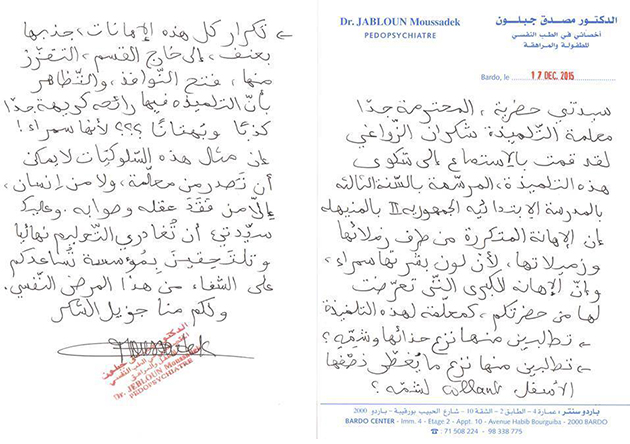 Dr. JABLOUN Moussadek
PEDOPSYCHIATRE
الدكتور مصدق جبلون
أخصائي في الطب النفسي
للطفولة والمراهقة
Bardo, le 17 DEC. 2015
سيدتي حضرية، المحترمة جدا
معلمة التلميذة شكران الزواغي
لقد قمت بالاستماع إلى شكوى
هذه التلميذة، المرسمة بالسنة الثالثة
بالمدرسة الابتدائية الجمهورية II بالمنيهلة
إن الإهانة المتكررة من طرف زملائها
وزميلاتها، لأن لون بشرتها سمراء،
وإن الإهانة الكبرى التي تعرضت
لها من حضرتكم، كمعلمة لهذه التلميذة
تطلبين منها نزع حذائها وشمه؟
تطلبين منها نزع ما يغطي نصفها
الأسفل collant لشمه؟
باردو سنتر، عمارة 4 - الطابق 2 - الشقة 10 - شارع الحبيب بورقيبة - باردو 2000
BARDO CENTER - Imm. 4 - Etage 2 - Appt. 10 - Avenue Habib Bourguiba - 2000 BARDO
☎ : 71 508 224 - 98 338 775
تكرار كل هذه الإهانات، جذبها
بعنف، إلى خارج القسم، التقزز
منها، فتح النوافذ، والتظاهر
بأن التلميذة فيها رائحة كريهة جدا
كذبا وبهتانا ؟؟؟ لأنها سمراء!
إن مثال هذه السلوكيات لا يمكن
أن تصدر من معلمة، ولا من إنسان،
إلا من فقد عقله وصوابه. وعليك
سيدتي أن تغادري التعليم نهائيا
وتلتحقين بمؤسسة تساعدكم
على الشفاء من هذا المرض النفسي.
ولكم منا جزيل الشكر
Moussadek
الدكتور مصدق جبلون
Dr. JEBLOUN Moussadek
PEDOPSYCHIATRE